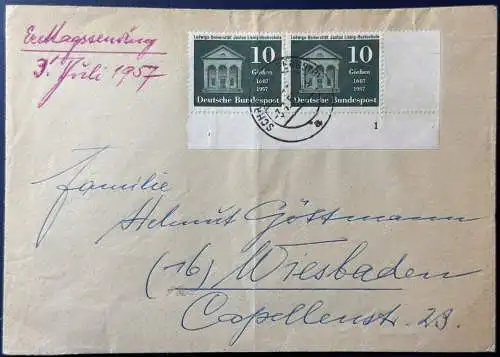 Ersttagssendung
3. Juli 1957
Ludwigs-Universität Justus Liebig-Hochschule
10
Gießen
1607
1957
Deutsche Bundespost
Ludwigs-Universität Justus Liebig-Hochschule
10
Gießen
1607
1957
Deutsche Bundespost
1
Familie
Helmut Göttmann
(16) Wiesbaden
Capellenstr. 23.